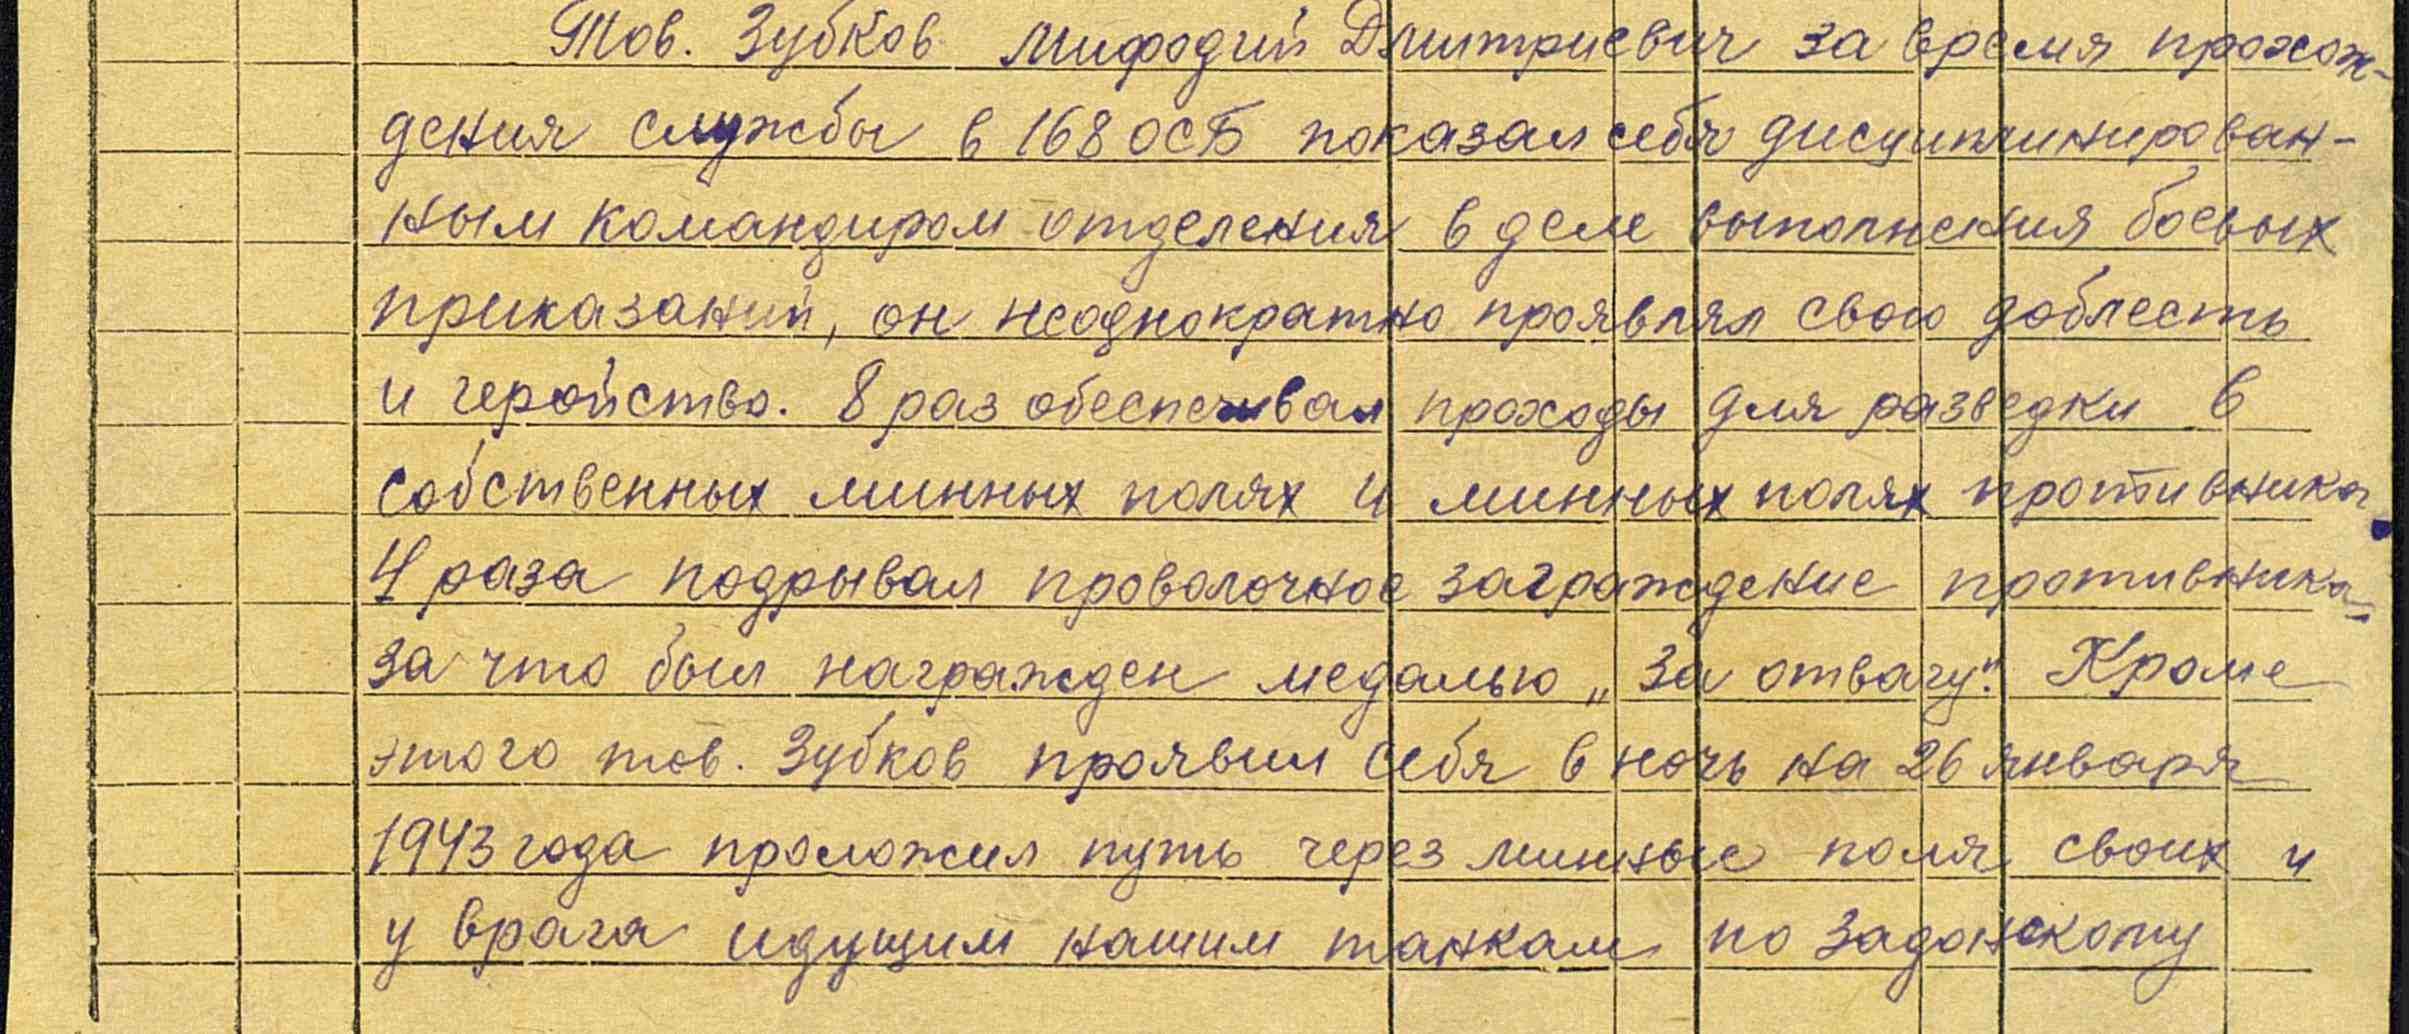 Тов. Зубков Мифодий Дмитриевич за время прохож-
дения службы в 168 ОСБ показал себя дисциплинирован-
ным командиром отделения в деле выполнения боевых
приказаний, он неоднократно проявлял свою доблесть
и геройство. 8 раз обеспечивал проходы для разведки в
собственных минных полях и минных полях противника.
4 раза подрывал проволочное заграждение противника
за что был награжден медалью „За отвагу". Кроме
этого тов. Зубков проявил себя в ночь на 26 января
1943 года проложил путь через минные поля своих и
у врага идущим нашим танкам по Задонскому